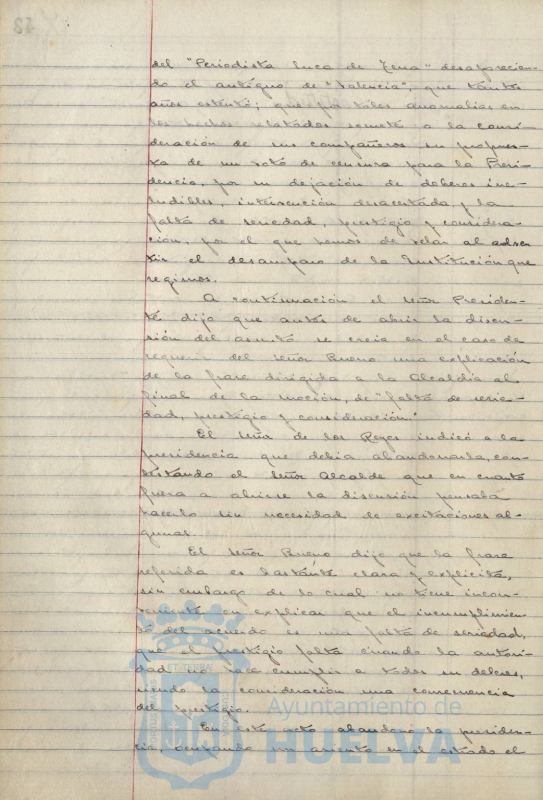 del "Periodista Luca de Tena" desaparecien-
do el antiguo de "Valencia", que tantos
años ostentó; que por tales anomalías en
los hechos relatados somete a la consi-
deración de sus compañeros su propues-
ta de un voto de censura para la Presi-
dencia, por su dejación de deberes ine-
ludibles, intervención desacertada, y la
falta de seriedad, prestigio y considera-
ción, por el que hemos de velar al adver-
tir el desamparo de la Institución que
regimos.
A continuación el señor Presiden-
te dijo que antes de abrir la discu-
sión del asunto se creia en el caso de
requerir del señor Bueno una explicación
de la frase dirigida a la Alcaldía al
final de la moción, de "falta de serie-
dad, prestigio y consideración."
El señor de los Reyes indicó a la
presidencia que debía abandonarla, con-
testando el señor Alcalde que en cuanto
fuera a abrirse la discusión pensaba
hacerlo sin necesidad de excitaciones al-
gunas.
El señor Bueno dijo que la frase
referida es bastante clara y explicita,
sin embargo de lo cual no tiene incon-
veniente en explicar que el incumplimien-
to del acuerdo es una falta de seriedad,
que el prestigio falta cuando la autori-
dad no hace cumplir a todos su deberes,
siendo la consideración una consecuencia
del prestigio.
En este acto abandonó la presiden-
cia, ocupando un asiento en el estrado el
Ayuntamiento de
HUELVA